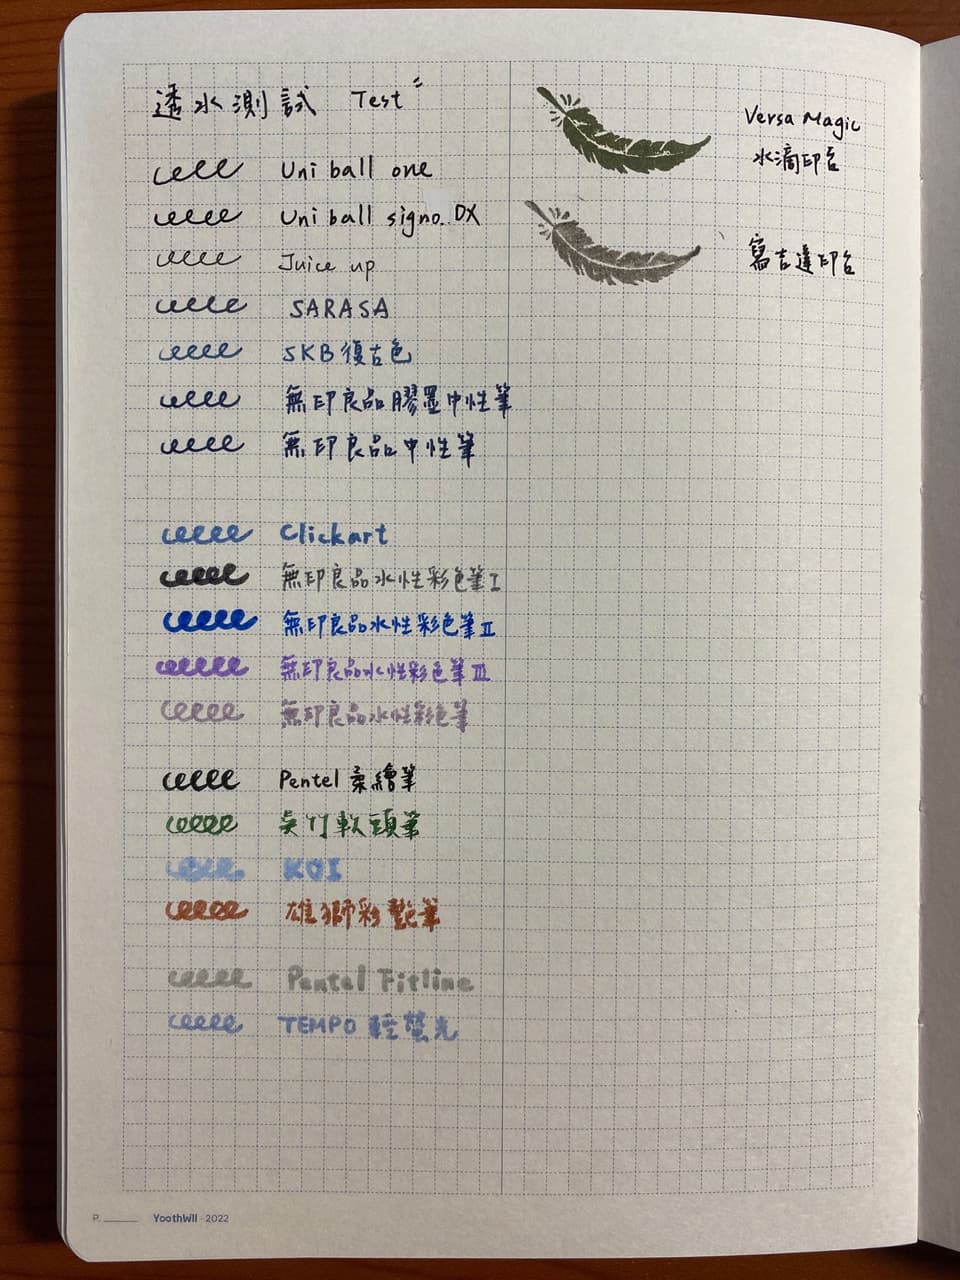 透水測試 Test
Uni ball one
Uni ball signo. DX
Juice up
SARASA
SKB 復古色
無印良品膠墨中性筆
無印良品中性筆
Clickart
無印良品水性彩色筆 I
無印良品水性彩色筆 II
無印良品水性彩色筆 III
無印良品水性彩色筆
Pentel 柔繪筆
吳竹軟頭筆
KOI
雄獅彩艷筆
Pentel Fitline
TEMPO 輕螢光
Versa Magic
水滴印台
寫吉達印台
P.
YoothWII - 2022